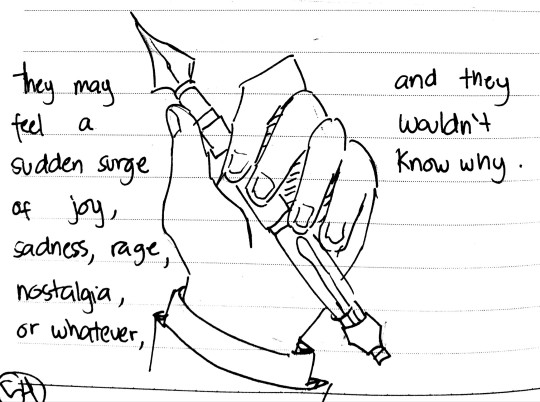 They may
feel a
sudden surge
of joy,
sadness, rage,
nostalgia,
or whatever,
and they
wouldn't
know why.